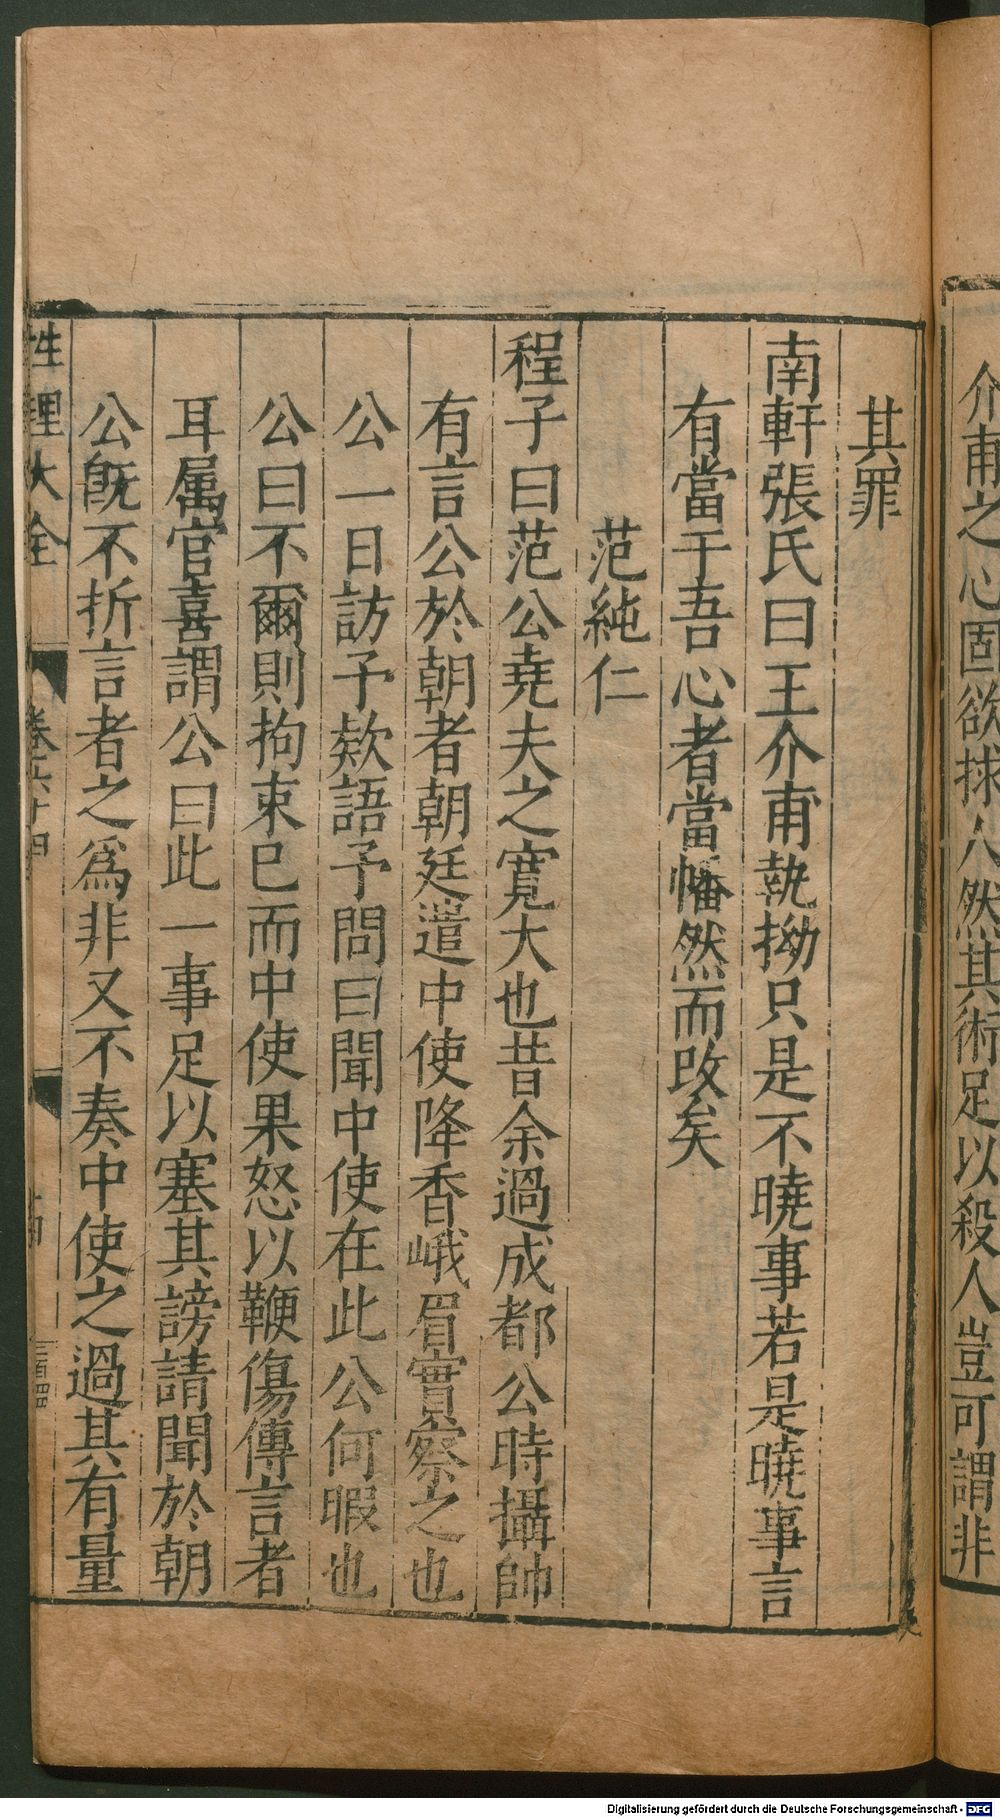 介甫之心固欲救人然其術足以殺人豈可謂非
其罪
南軒張氏曰王介甫執拗只是不曉事若是曉事言
有當于吾心者當幡然而改矣
范純仁
程子曰范公堯夫之寛大也昔余過成都公時攝帥
有言公於朝者朝廷遣中使降香峨眉實察之也
公一日訪予欵語予問曰聞中使在此公何暇也
公曰不爾則拘束已而中使果怒以鞭傷傳言者
耳属官喜謂公曰此一事足以塞其謗請聞於朝
公旣不折言者之爲非又不奏中使之過其有量
性理大全 卷六十四
Digitalisierung gefördert durch die Deutsche Forschungsgemeinschaft - DFG